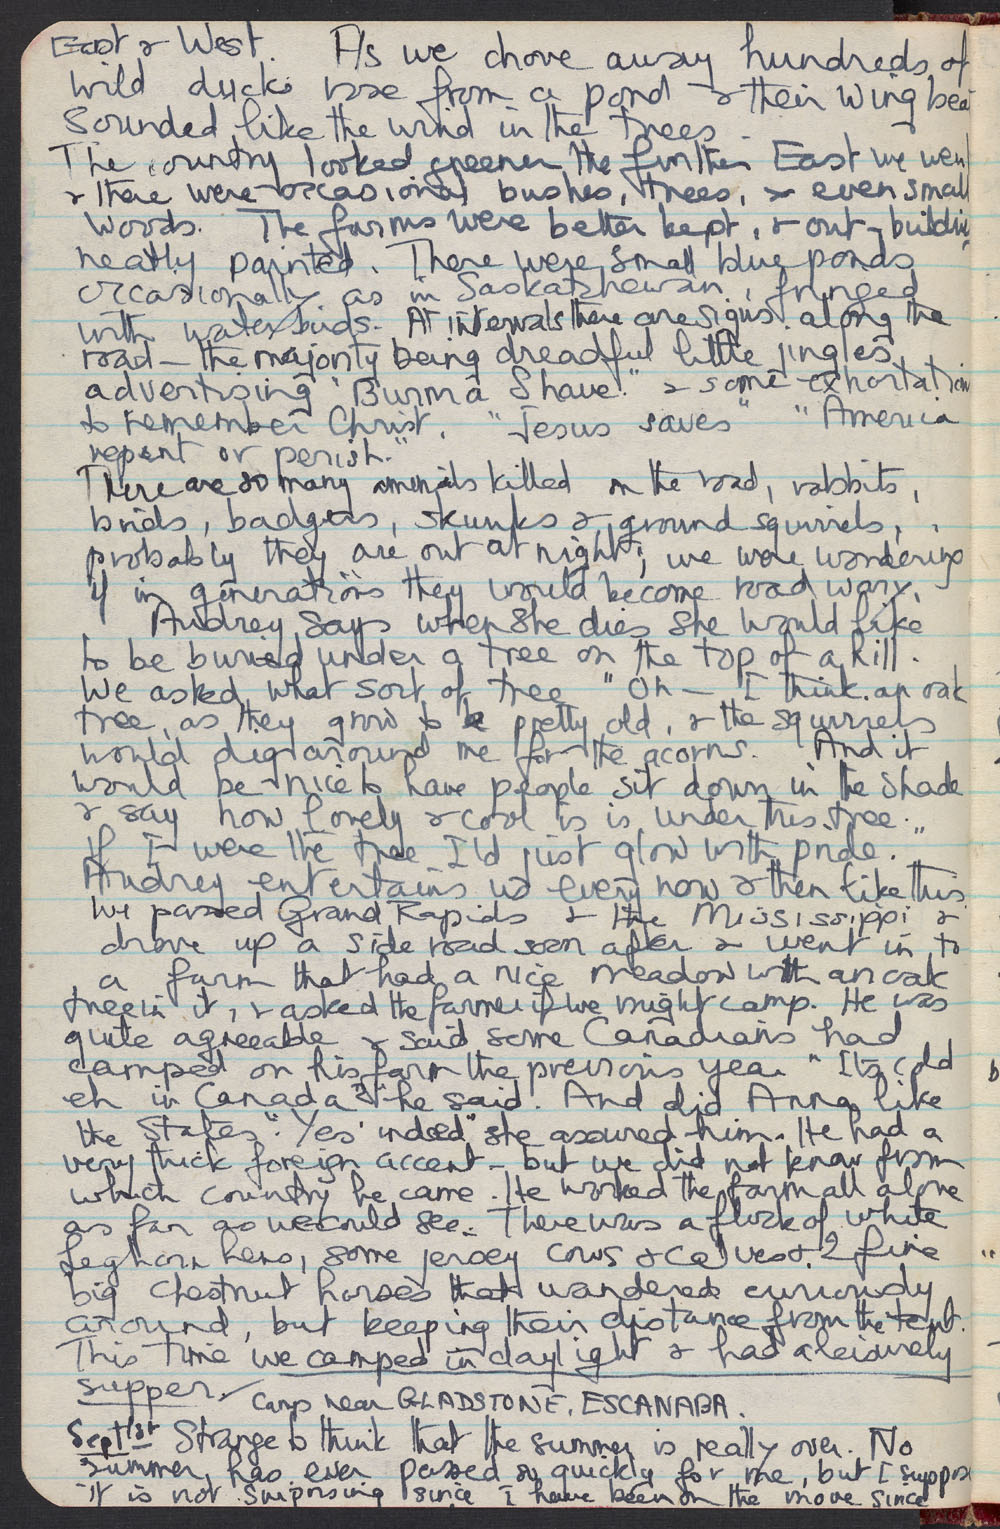 East & West. As we drove away hundreds of
wild ducks rose from a pond & their wing bea
sounded like the wind in the trees.
The country looked greener the further East we wen
& there were occasional bushes, trees, & even small
woods. The farms were better kept, & out-buildin
neatly painted. There were small blue ponds
occasionally as in Saskatchewan, fringed
with water birds. At intervals there are signs along the
road – the majority being dreadful little jingles
advertising "Burma Shave" & some exhortation
to remember Christ. "Jesus saves" "America
repent or perish."
There are so many animals killed on the road, rabbits,
birds, badgers, skunks & ground squirrels,
probably they are out at night; we were wondering
if in generations they would become road wary.
Audrey says when she dies she would like
to be buried under a tree on the top of a hill.
We asked what sort of tree "Oh — I think an oak
tree, as they grow to be pretty old, & the squirrels
would dig around me for the acorns. And it
would be nice to have people sit down in the shade
& say how lovely & cool is is under this tree.
if I were the tree I'd just glow with pride."
Audrey entertains us every now & then like this.
We passed Grand Rapids & the Mississippi &
drove up a side road soon after & went in to
a farm that had a nice meadow with an oak
tree in it, & asked the farmer if we might camp. He was
quite agreeable & said some Canadians had
camped on his farm the previous year. "Its cold
eh in Canada?" he said. And did Anna like
the States". "Yes indeed" she assured him. He had a
very thick foreign accent – but we did not know from
which country he came. He worked the farm all alone
as far as we could see. There was a flock of white
leghorn hens, some jersey cows & calves & 2 fine
big chestnut horses that wandered curiously
around, but keeping their distance from the tent.
This time we camped in daylight & had a leisurely
supper. Camp near GLADSTONE, ESCANABA.
Sept 1st Strange to think that the summer is really over. No
summer has ever passed so quickly for me, but I suppose
it is not surprising since I have been on the move since